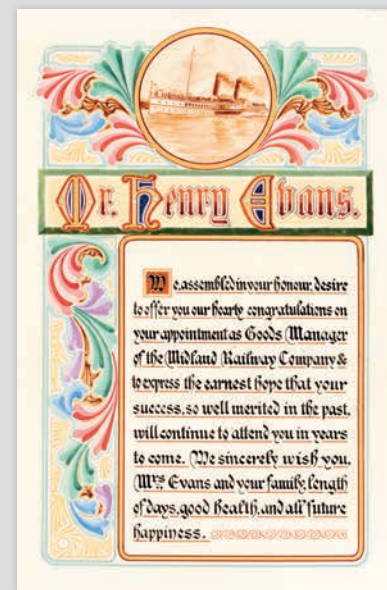 Mr. Henry Evans.
We, assembled in your honour, desire
to offer you our hearty congratulations on
your appointment as Goods Manager
of the Midland Railway Company &
to express the earnest hope that your
success, so well merited in the past,
will continue to attend you in years
to come. We sincerely wish you,
Mrs Evans and your family, length
of days, good health, and all future
happiness.